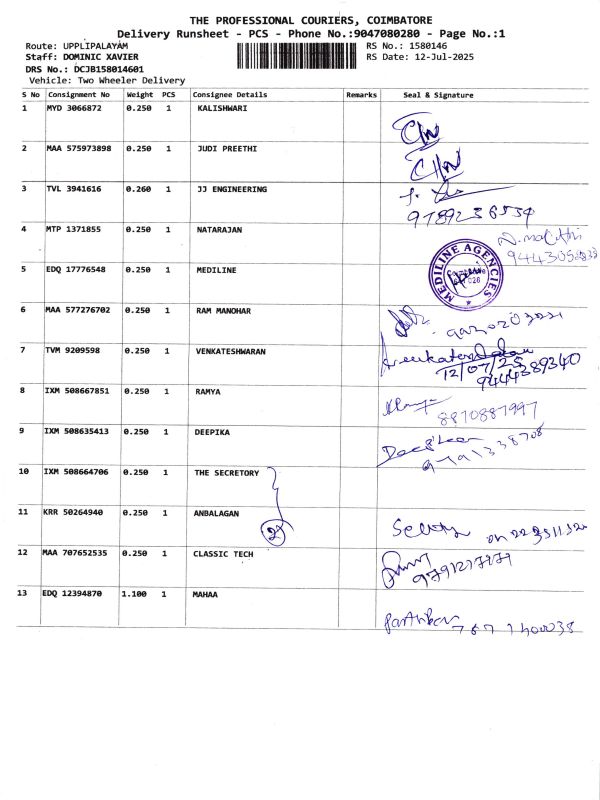 THE PROFESSIONAL COURIERS, COIMBATORE
Delivery Runsheet - PCS - Phone No.:9047080280 - Page No.:1
Route: UPPLIPALAYAM
RS No.: 1580146
Staff: DOMINIC XAVIER
RS Date: 12-Jul-2025
DRS No.: DCJB158014601
Vehicle: Two Wheeler Delivery
S No Consignment No Weight PCS Consignee Details Remarks Seal & Signature
1 MYD 3066872 0.250 1 KALISHWARI
2 MAA 575973898 0.250 1 JUDI PREETHI
3 TVL 3941616 0.260 1 JJ ENGINEERING
9789236534
4 MTP 1371855 0.250 1 NATARAJAN
5 EDQ 17776548 0.250 1 MEDILINE
MEDILINE AGENCIES
6 MAA 577276702 0.250 1 RAM MANOHAR
7 TVM 9209598 0.250 1 VENKATESHWARAN
12/07/25
9444389340
8 IXM 508667851 0.250 1 RAMYA
8870887997
9 IXM 508635413 0.250 1 DEEPIKA
9791338708
10 IXM 508664706 0.250 1 THE SECRETORY
11 KRR 50264940 0.250 1 ANBALAGAN
2
12 MAA 707652535 0.250 1 CLASSIC TECH
9791217171
13 EDQ 12394870 1.100 1 MAHAA